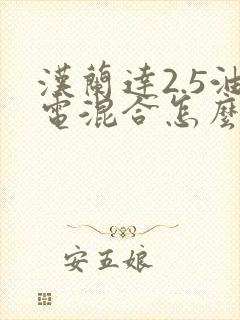 漢蘭達2.5油
電混合怎麼
安五娘